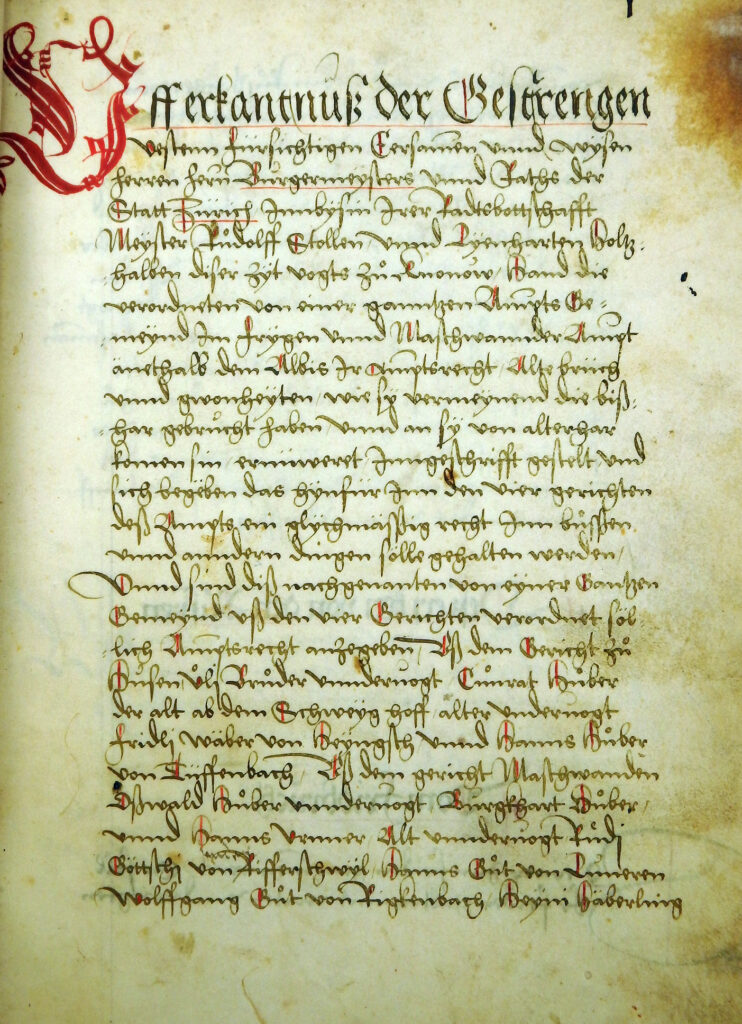 Uff erkantnuß der Gestrengen
Vestenn fürsichtigen Eersamen unnd wysen
herren herrn Burgermeysters unnd Raths der
Statt Zürich Innbysin Irer Radtsbottschafft
Meyster Růdolff Stollen, unnd Lyenharten Holtz-
halben diser zyt vogts zů Knonow, Hand die
verordneten von einer ganntzen Ampts Ge-
meynd In frygen unnd Maschwannder Ampt
änethalb dem Albis Ir Amptsrecht, Alte brüch
unnd gwonheyten, wie sy vermeynend die biß-
har gebrucht haben unnd an sy von alterhar
komen sin, ernüweret Inngeschrifft gestelt und
sich begeben das hynfür Inn den vier gerichten
deß Ampts, ein glychmässig recht Inn bůssen
unnd anndern dingen sölle gehalten werden,
Unnd sind diß nachgenanten von eyner Gantzen
Gemeynd uß den vier Gerichten verordnet söl-
lich Amptsrecht anzegeben, Uß dem Gericht zů
Husen, Uli Brůder unndervogt, Cůnrat Hůber
der alt ab dem Schweyghoff alter undervogt
fridli wäber von Heyngsch unnd Hanns Hůber
von Tüffenbach, Uß dem gericht Maschwanden
Oßwald Hůber unndervogt, Burgkhart Hůber,
unnd Hanns Urmer Alt unndervogt Růdi
Göttschi von Rifferschwyl, Hanns Gůt von Luneren
Wolffgang Gůt von Rigkenbach, Heyni Häberling